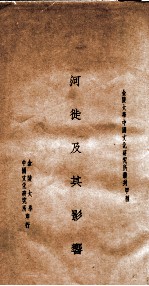 金陵大學中國文化研究所叢刊甲種
河徙及其影響
金陵大學
中國文化研究所
印行